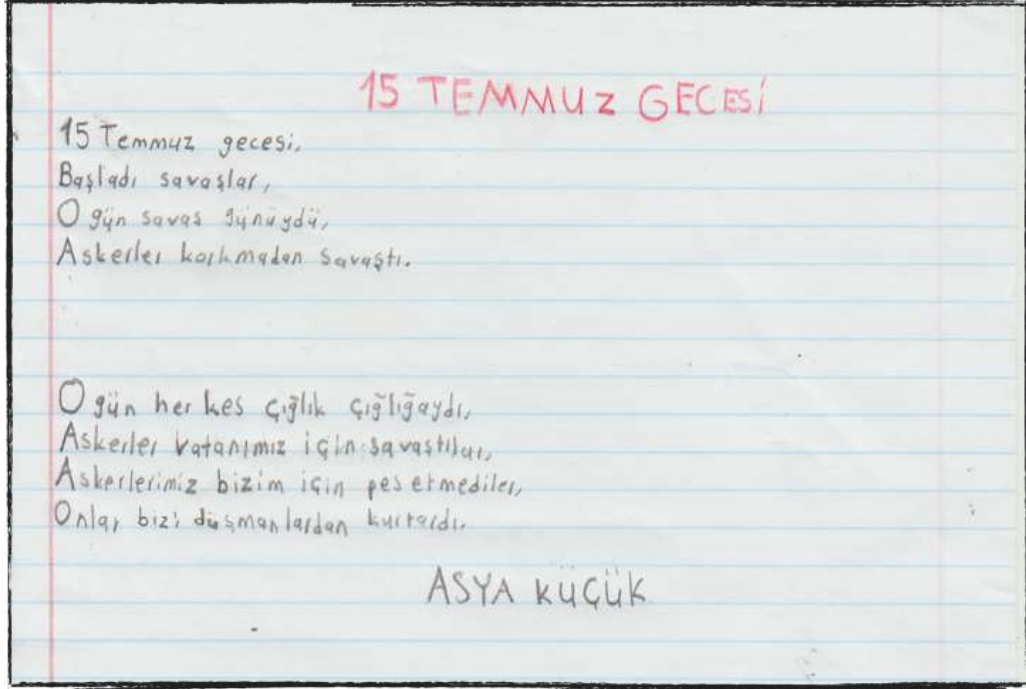 15 TEMMUZ GECESİ
15 Temmuz gecesi,
Başladı savaşlar,
O gün savaş günüydü,
Askerler korkmadan savaştı.
O gün herkes çığlık çığlığaydı,
Askerler vatanımız için savaştılar,
Askerlerimiz bizim için pes etmediler,
Onlar bizi düşmanlardan kurtardı.
ASYA KÜÇÜK